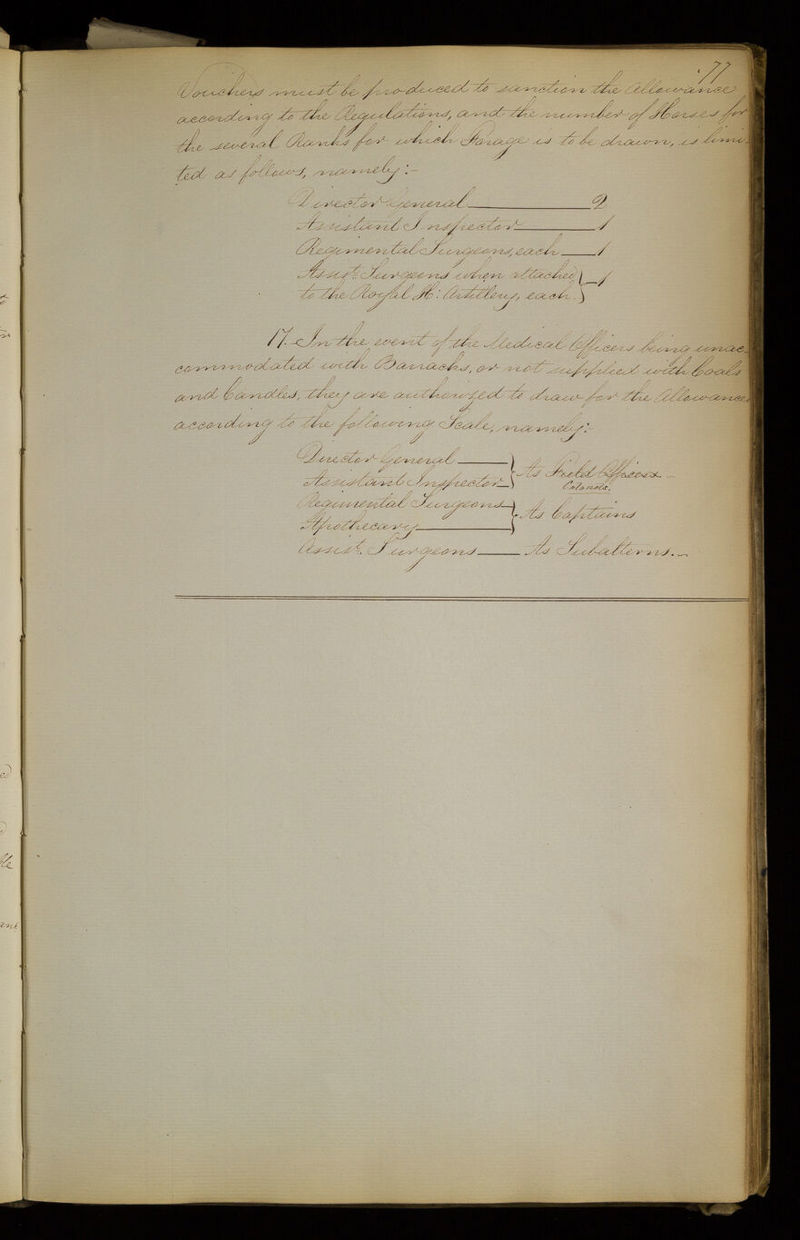 77
Vouchers must be produced to sanction the Allowance
according to the Regulations, and the number of Horses for
the several Ranks for which Forage is to be drawn, is limi-
ted as follows, namely:-
Director General 2
Assistant Inspector 1
Regimental Surgeons, each 1
Assist. Surgeons when attached
to the Royal H: Artillery, each. } 1
17. In the event of the Medical Officers being unac-
commodated with Barracks, or not supplied with Coals
and Candles, they are authorized to draw for the Allowance,
according to the following Scale, namely:-
Director General
Assistant Inspector } As Field Officers
Colonels.
Regimental Surgeons
Apothecary } As Captains
Assist. Surgeons As Subalterns.